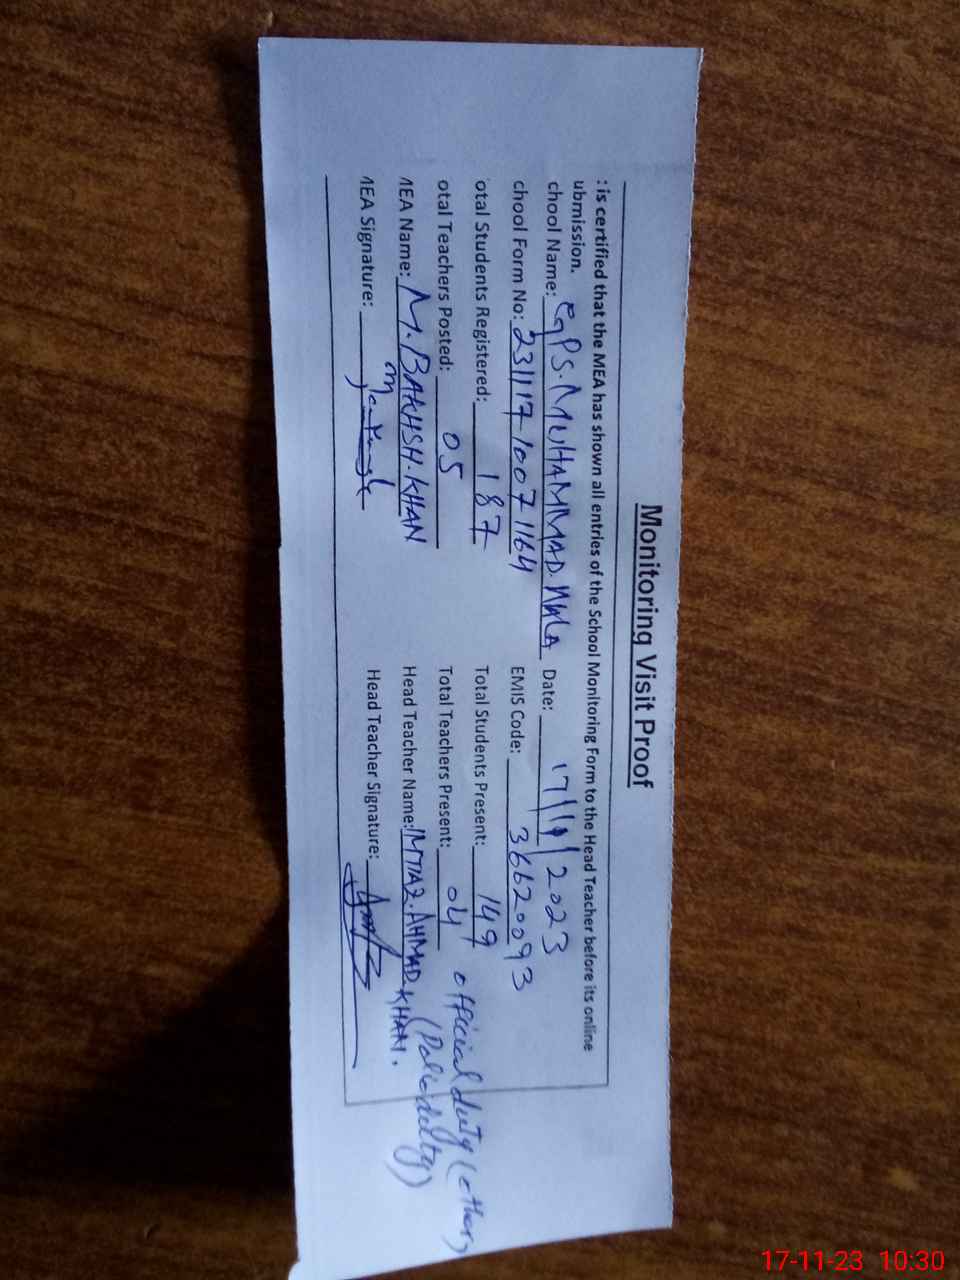 Monitoring Visit Proof
: is certified that the MEA has shown all entries of the School Monitoring Form to the Head Teacher before its online
ubmission.
chool Name: GPS.MUHAMMAD.WALA Date: 17/11/2023
chool Form No: 23111710071164 EMIS Code: 36620093
otal Students Registered: 187 Total Students Present: 149
otal Teachers Posted: 05 Total Teachers Present: 04 official duty (other)
(Polio duty)
MEA Name: M.BAKHSH.KHAN Head Teacher Name: IMTIAZ.AHMAD.KHAN.
MEA Signature: Head Teacher Signature:
17-11-23 10:30